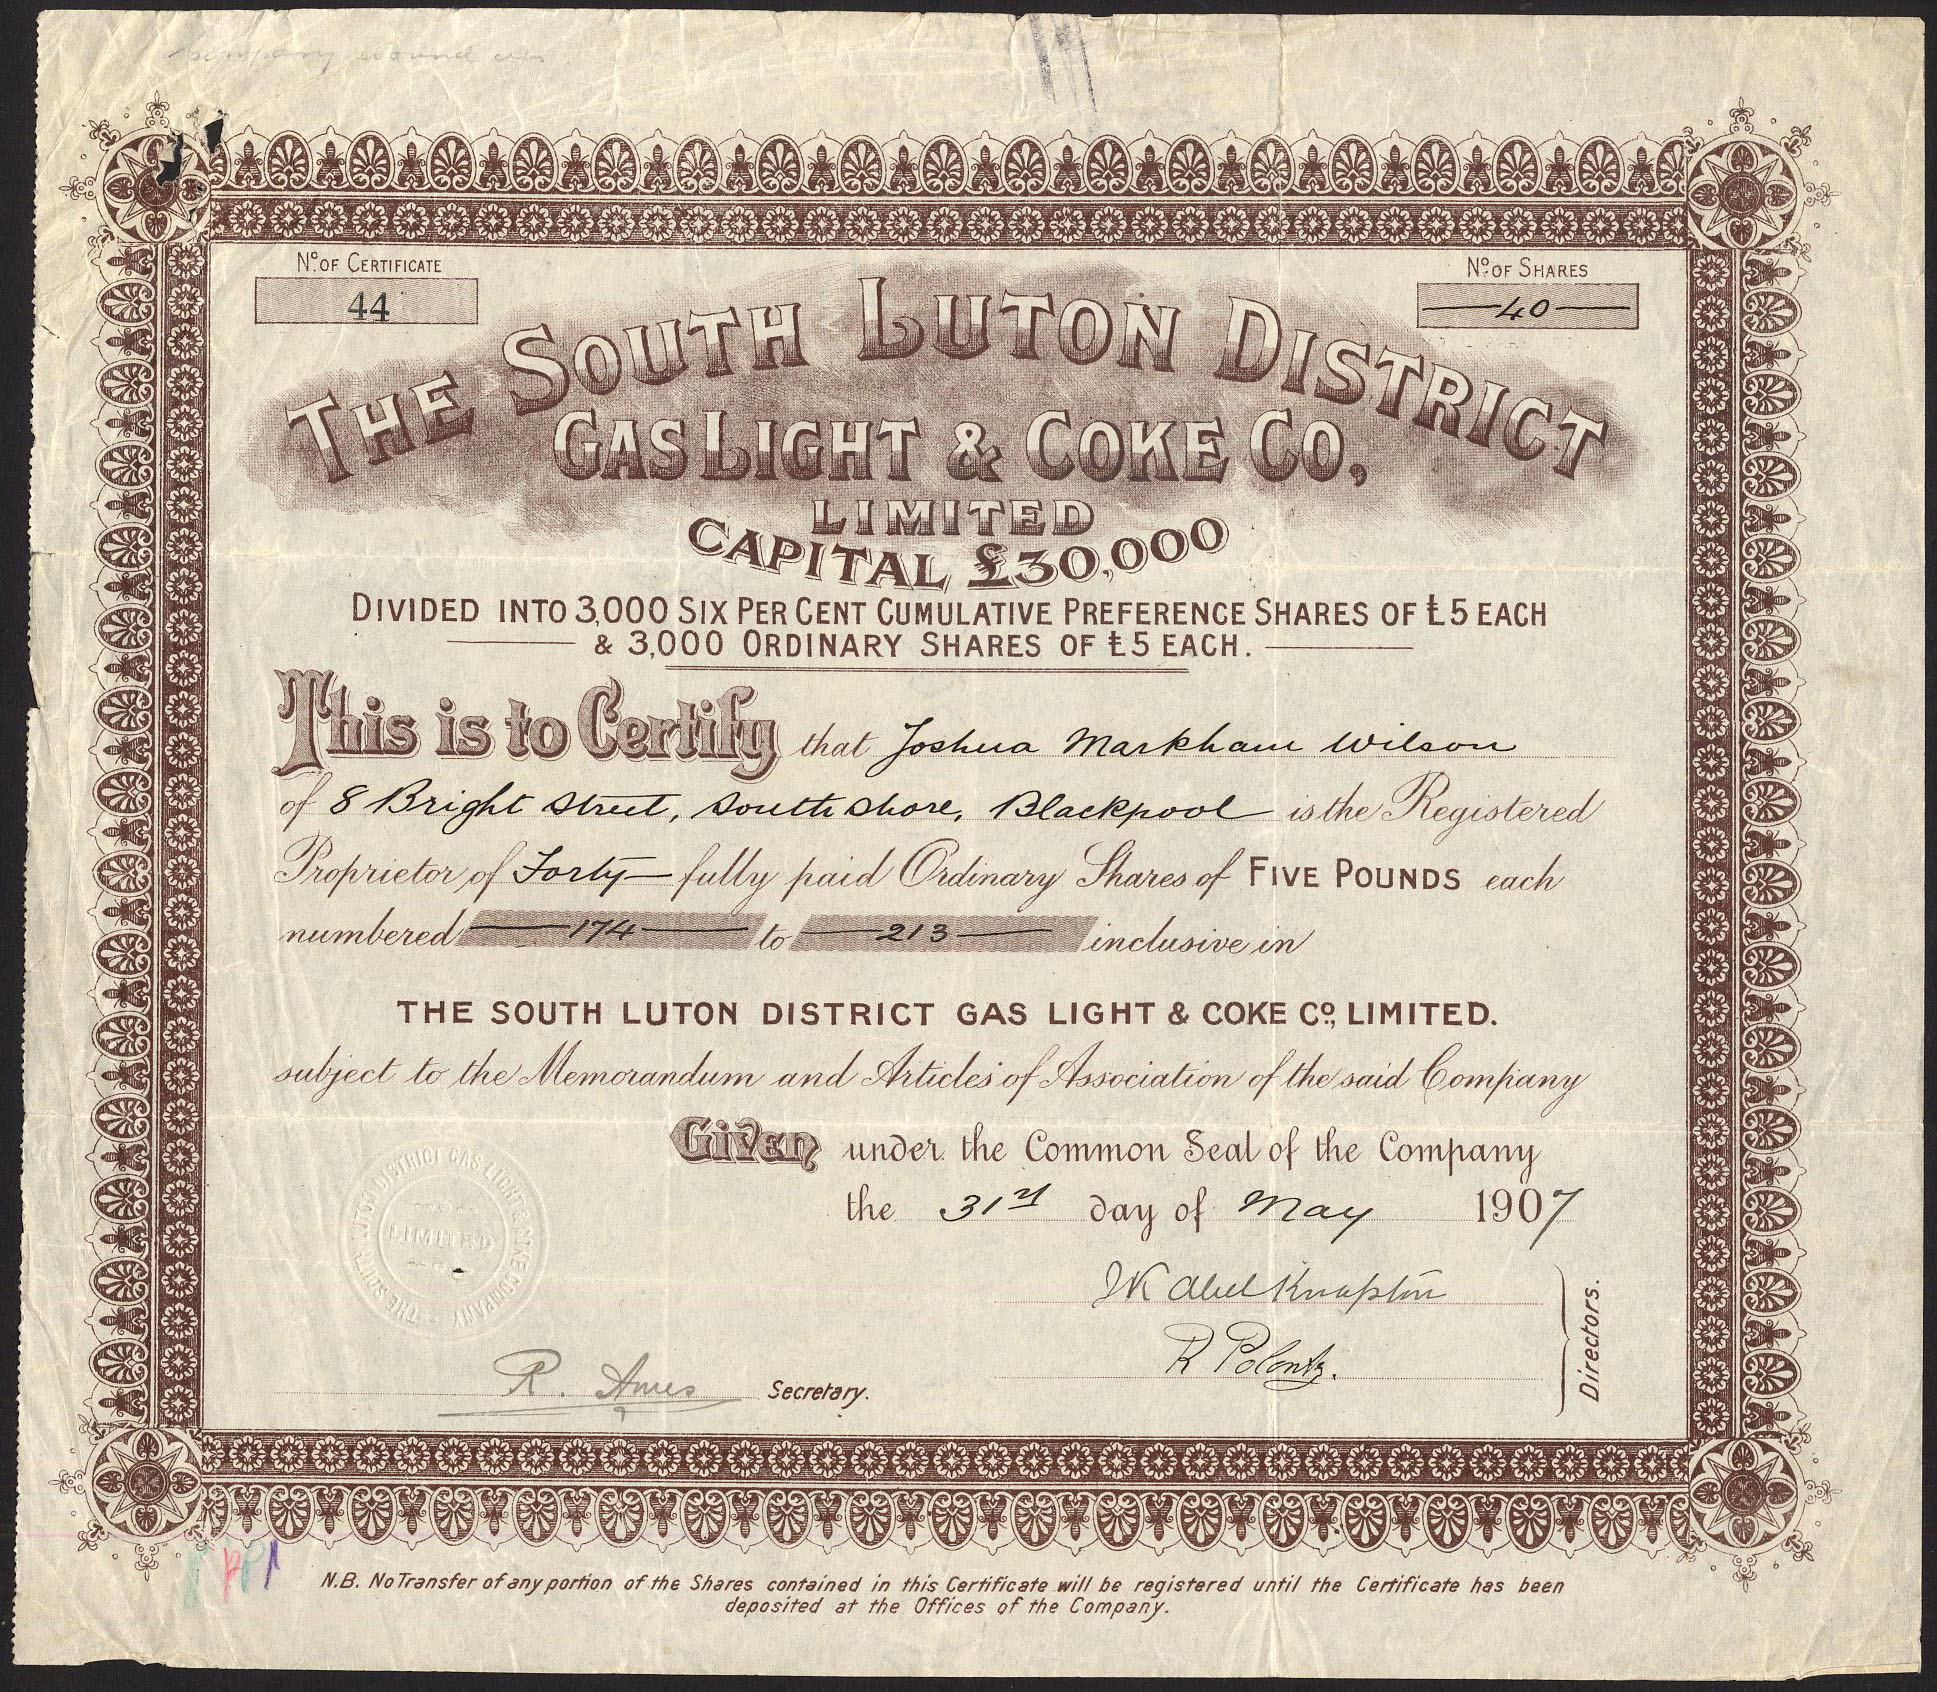 company wound up
No. OF CERTIFICATE
44
No. OF SHARES
40
THE SOUTH LUTON DISTRICT
GAS LIGHT & COKE CO,
LIMITED
CAPITAL £30,000
DIVIDED INTO 3,000 SIX PER CENT CUMULATIVE PREFERENCE SHARES OF £5 EACH
& 3,000 ORDINARY SHARES OF £5 EACH.
This is to Certify that Joshua Markham Wilson
of 8 Bright Street, South Shore, Blackpool is the Registered
Proprietor of Forty fully paid Ordinary Shares of FIVE POUNDS each
numbered 174 to 213 inclusive in
THE SOUTH LUTON DISTRICT GAS LIGHT & COKE CO., LIMITED.
subject to the Memorandum and Articles of Association of the said Company
Given under the Common Seal of the Company
the 31st day of May 1907
THE SOUTH LUTON DISTRICT GAS LIGHT & COKE COMPANY
LIMITED
Abel Knapton
R Polontz.
Directors.
R. Ames Secretary.
N.B. No Transfer of any portion of the Shares contained in this Certificate will be registered until the Certificate has been
deposited at the Offices of the Company.